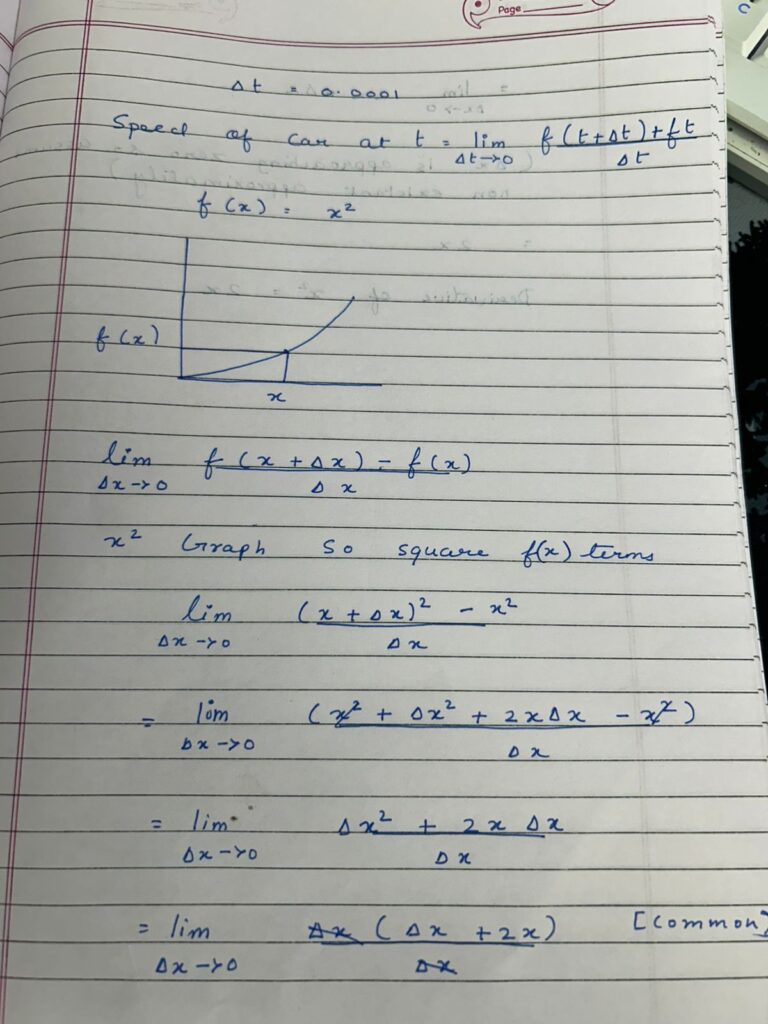 Page
Δt = 0.0001
Speed of car at t = lim Δt→0 f(t+Δt)+ft / Δt
f(x) = x²
f(x)
x
lim Δx→0 f(x+Δx) - f(x) / Δx
x² Graph so square f(x) terms
lim Δx→0 (x+Δx)² - x² / Δx
= lim Δx→0 (x² + Δx² + 2xΔx - x²) / Δx
= lim Δx→0 Δx² + 2xΔx / Δx
= lim Δx→0 Δx (Δx + 2x) / Δx [common]